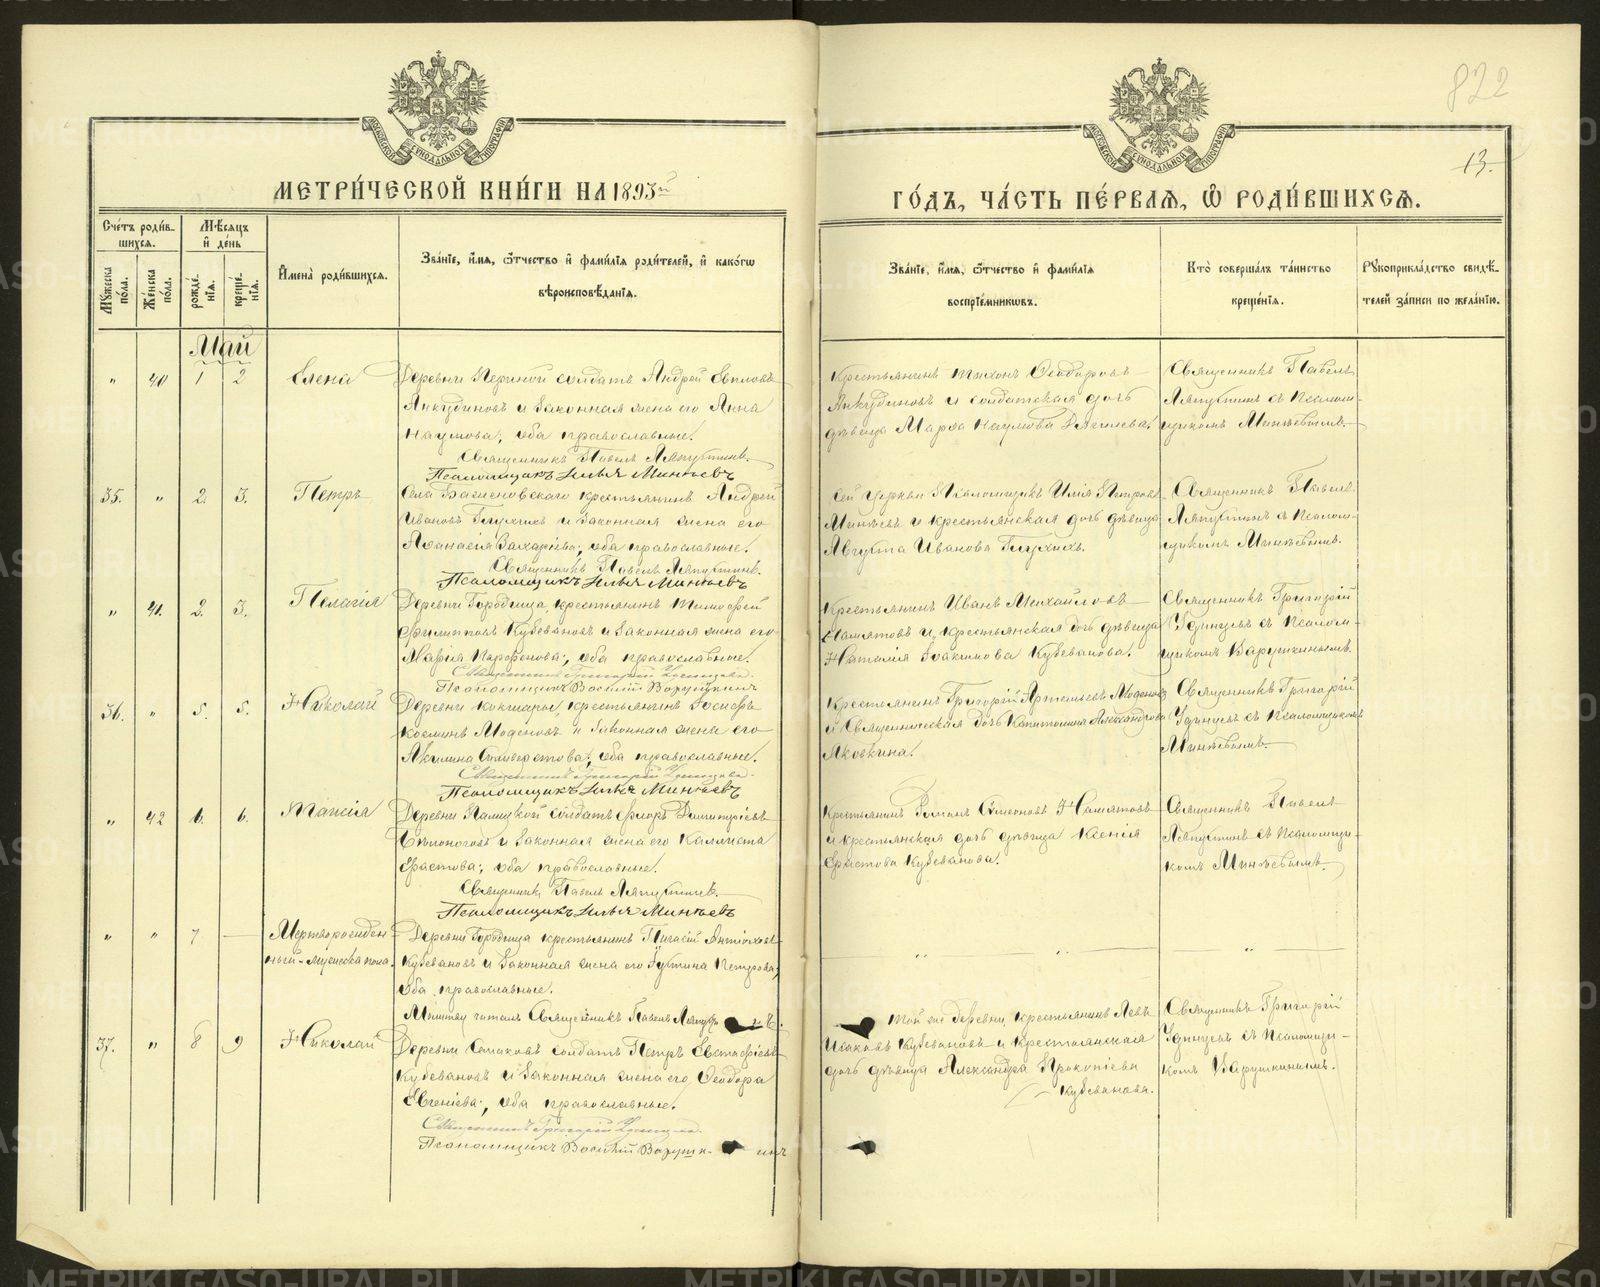 822
13.
МЕТРИ́ЧЕСКОЙ КНИ́ГИ НА 1893й
ГО́ДЪ, ЧА́СТЬ ПЕ́РВАѦ, Ѿ РОДИ́ВШИХСѦ.
Сче́тъ роди́в-
шихсѧ.
Мѣ́сѧцъ
и̑ де́нь
Мꙋжеска по́ла.
Же́нска по́ла.
рожде́-нїѧ.
креще́-нїѧ.
И̑мена̀ роди́вшихсѧ.
Зва́нїе, и́мѧ, ѻ́тчество и̑ фами́лїѧ роди́телей, и̑ како́гѡ
вѣроисповѣ́данїѧ.
Зва́нїе, и́мѧ, ѻ́тчество и̑ фами́лїѧ
воспрїе́мникѡвъ.
Кто̀ соверша́лъ та́инство
креще́нїѧ.
Рꙋкоприкла́дство свидѣ́-
телей за́писи по жела́нїю.
Май
" 40 1 2 Елена
Деревни солдатъ Андрей
Анкудиновъ и законная жена его Анна
Наумова, оба православные.
Священникъ Павелъ Ляпустинъ.
Псаломщикъ Илья Минѣевъ
Крестьянинъ Тихонъ Ѳеодоровъ
Анкудиновъ и солдатская дочь
дѣвица Марѳа Наумова
Священникъ Павелъ
Ляпустинъ съ Псалом-
щикомъ Минѣевымъ.
35. " 2. 3. Петръ
Села крестьянинъ Андрей
Ивановъ Глухихъ и законная жена его
Аѳанасія Захарьева; оба православные.
Священникъ Павелъ Ляпустинъ.
Псаломщикъ Илья Минѣевъ
Сей церкви Псаломщикъ Илія Петровъ
Минѣевъ и крестьянская дочь дѣвица
Августа Иванова Глухихъ.
Священникъ Павелъ
Ляпустинъ съ Псалом-
щикомъ Минѣевымъ.
" 41. 2. 3. Пелагія
Деревни Городища, крестьянинъ Тимофей
Филипповъ Кубевановъ и законная жена его
Марія Парѳенова; оба православные.
Священникъ Григорій Удинцевъ.
Псаломщикъ Василій Варушкинъ
Крестьянинъ Иванъ Михайловъ
и крестьянская дочь дѣвица
Наталія Іоакимова Кубеванова.
Священникъ Григорій
Удинцевъ съ Псалом-
щикомъ Варушкинымъ.
36. " 5. 5. Николай
Деревни крестьянинъ Іосифъ
Косминъ Моденовъ и законная жена его
Акилина Силиверстова; оба православные.
Священникъ Григорій Удинцевъ.
Псаломщикъ Илья Минѣевъ
Крестьянинъ Григорій Артемьевъ Моденовъ
и Священническая дочь Капитолина Александрова
Яковкина.
Священникъ Григорій
Удинцевъ съ Псаломщикомъ
Минѣевымъ.
" 42 6. 6. Таисія
Деревни солдатъ Димитріевъ
и законная жена его Каллиста
Ерастова; оба православные.
Священникъ Павелъ Ляпустинъ.
Псаломщикъ Илья Минѣевъ
Крестьянинъ Романъ Симеоновъ
и крестьянская дочь дѣвица Ксенія
Ерастова Кубеванова.
Священникъ Павелъ
Ляпустинъ съ Псаломщи-
комъ Минѣевымъ.
" " 7 — Мертворожден-
ный мужеска пола.
Деревни Городища крестьянинъ
Кубевановъ и законная жена его Іустина Петрова;
оба православные.
Молитву читалъ Священникъ Павелъ
37. " 8 9 Николай
Деревни солдатъ Петръ Евстафіевъ
Кубевановъ и законная жена его Ѳеодора
Евгеніева; оба православные.
Священникъ Григорій Удинцевъ.
Псаломщикъ Василій Варушкинъ
Той же деревни, крестьянинъ Левъ
Исаковъ Кубевановъ и крестьянская
дочь дѣвица Александра Прокопіева
Кубеванова.
Священникъ Григорій
Удинцевъ съ Псаломщи-
комъ Варушкинымъ.
METRIKI.GASO-URAL.RU